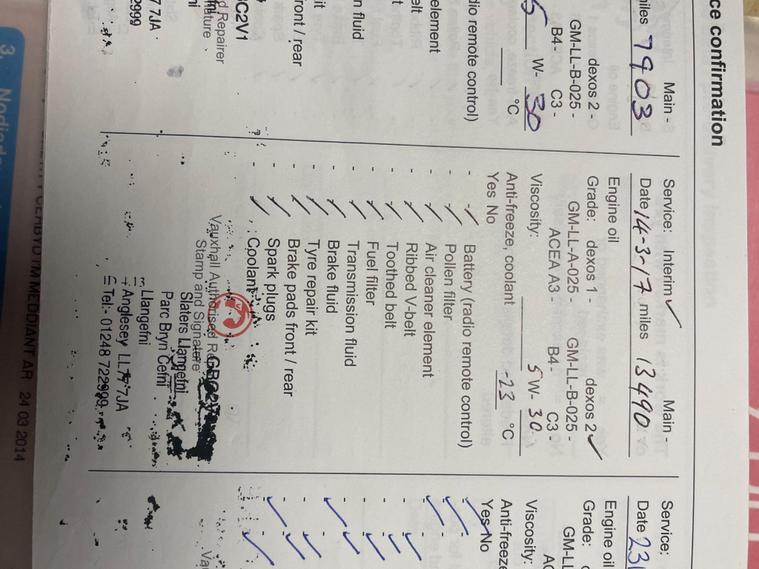 ce confirmation
Main -
miles 7903
dexos 2 -
GM-LL-B-025 -
B4- C3 -
5 W- 30
°C
dio remote control)
element
elt
n fluid
it
ront / rear
C2V1
d Repairer
7JA
2999
Service: Interim ✓ Main -
Date 14-3-17 miles 13490
Engine oil
Grade: dexos 1 - dexos 2 ✓
GM-LL-A-025 - GM-LL-B-025 -
ACEA A3 - B4- C3 -
Viscosity: 5 W- 30
Anti-freeze, coolant -23 °C
Yes No
- ✓ Battery (radio remote control)
- ✓ Pollen filter
- ✓ Air cleaner element
- ✓ Ribbed V-belt
- ✓ Toothed belt
- ✓ Fuel filter
- ✓ Transmission fluid
- ✓ Brake fluid
- ✓ Tyre repair kit
- ✓ Brake pads front / rear
- ✓ Spark plugs
- ✓ Coolant
Vauxhall Authorised Re
Stamp and Signature
Slaters Llangefni
Parc Bryn Cefni
Llangefni
Anglesey LL77 7JA
Tel:- 01248 722999
Service:
Date 23
Engine oil
Grade:
GM-LL
Viscosity:
Anti-freeze
Yes No
Va
3.
24 03 2014